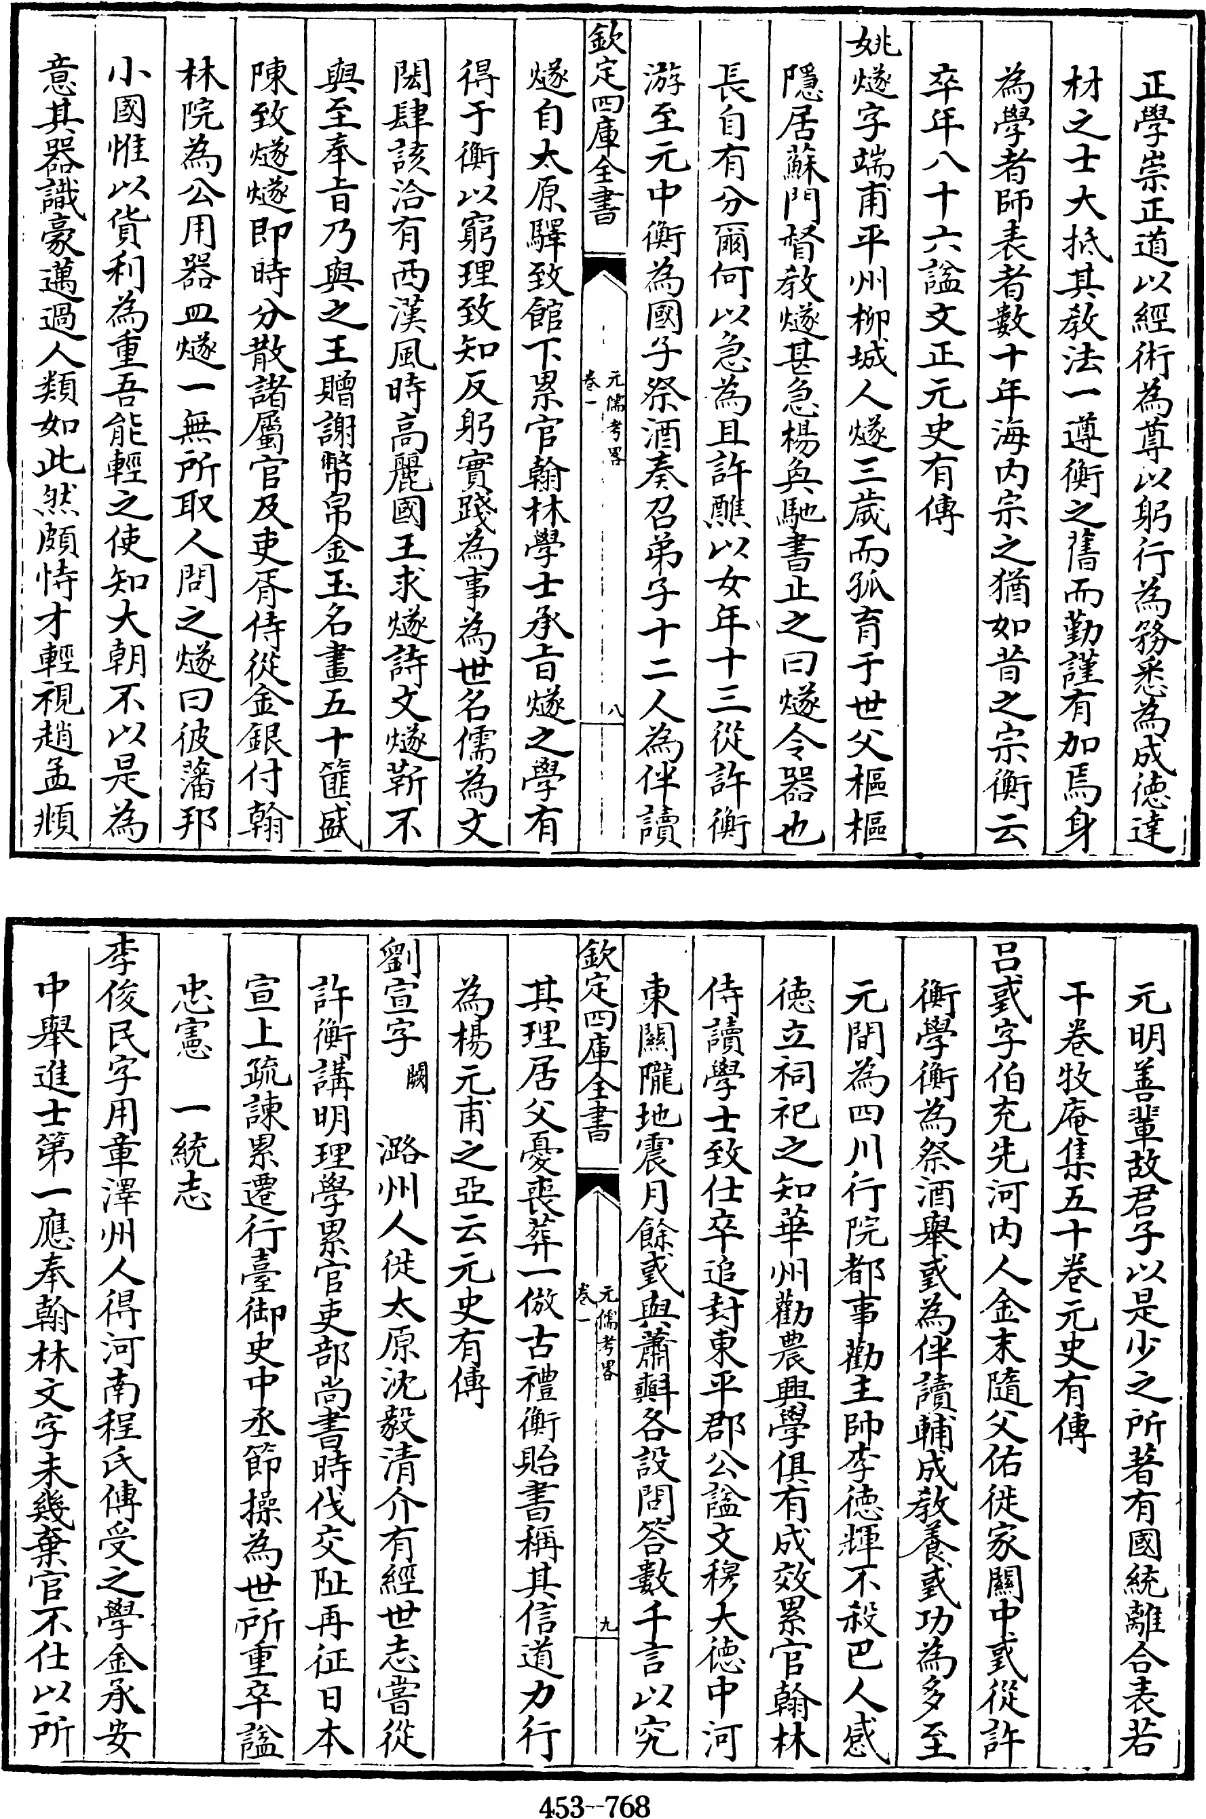 正學崇正道以經術為尊以躬行為務悉為成德達
材之士大抵其教法一遵衡之舊而勤謹有加焉身
為學者師表者數十年海内宗之猶如昔之宗衡云
卒年八十六諡文正元史有傳
姚燧字端甫平州柳城人燧三歲而孤育于世父樞樞
隱居蘇門督教燧甚急楊奐馳書止之曰燧令器也
長自有分爾何以急為且許醮以女年十三從許衡
游至元中衡為國子祭酒奏召弟子十二人為伴讀
欽定四庫全書
元儒考畧
卷一
八
燧自太原驛致館下累官翰林學士承旨燧之學有
得于衡以窮理致知反躬實踐為事為世名儒為文
閎肆該洽有西漢風時高麗國王求燧詩文燧靳不
與至奉旨乃與之王贈謝幣帛金玉名畫五十篚盛
陳致燧燧即時分散諸屬官及吏胥侍從金銀付翰
林院為公用器皿燧一無所取人問之燧曰彼藩邦
小國惟以貨利為重吾能輕之使知大朝不以是為
意其器識豪邁過人類如此然頗恃才輕視趙孟頫
元明善輩故君子以是少之所著有國統離合表若
干卷牧庵集五十卷元史有傳
吕彧字伯充先河内人金末隨父佑徙家關中彧從許
衡學衡為祭酒舉彧為伴讀輔成教養彧功為多至
元間為四川行院都事勸主帥李德輝不殺巴人感
德立祠祀之知華州勸農興學俱有成效累官翰林
侍讀學士致仕卒追封東平郡公諡文穆大德中河
東關隴地震月餘彧與蕭㪺各設問答數千言以究
欽定四庫全書
元儒考畧
卷一
九
其理居父憂喪葬一倣古禮衡貽書稱其信道力行
為楊元甫之亞云元史有傳
劉宣字 闕 潞州人徙太原沈毅清介有經世志嘗從
許衡講明理學累官吏部尚書時伐交阯再征日本
宣上疏諫累遷行臺御史中丞節操為世所重卒諡
忠憲 一統志
李俊民字用章澤州人得河南程氏傳受之學金承安
中舉進士第一應奉翰林文字未幾棄官不仕以所
453--768